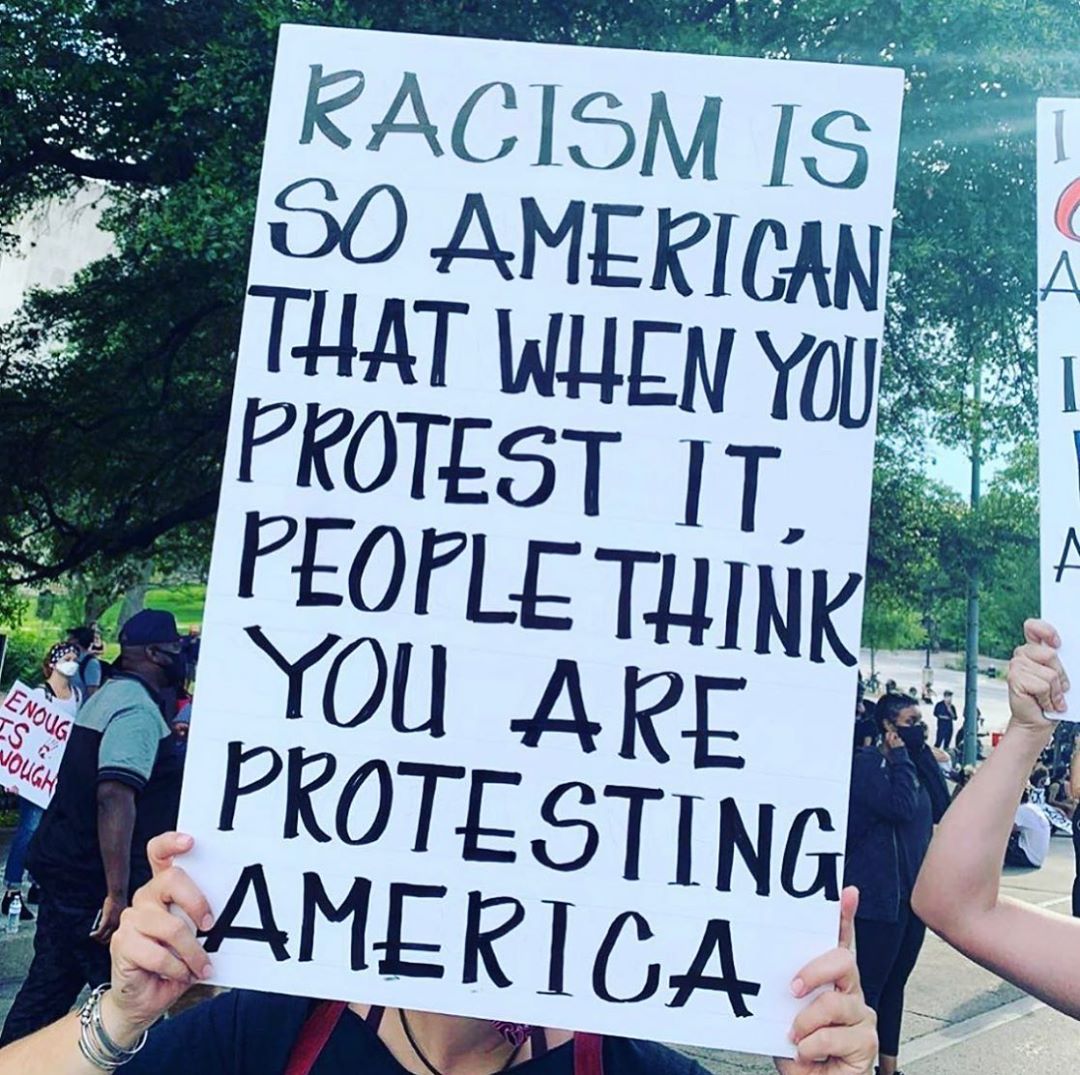 RACISM IS
SO AMERICAN
THAT WHEN YOU
PROTEST IT,
PEOPLE THINK
YOU ARE
PROTESTING
AMERICA
ENOUG
IS
NOUGH
I
A
I
A